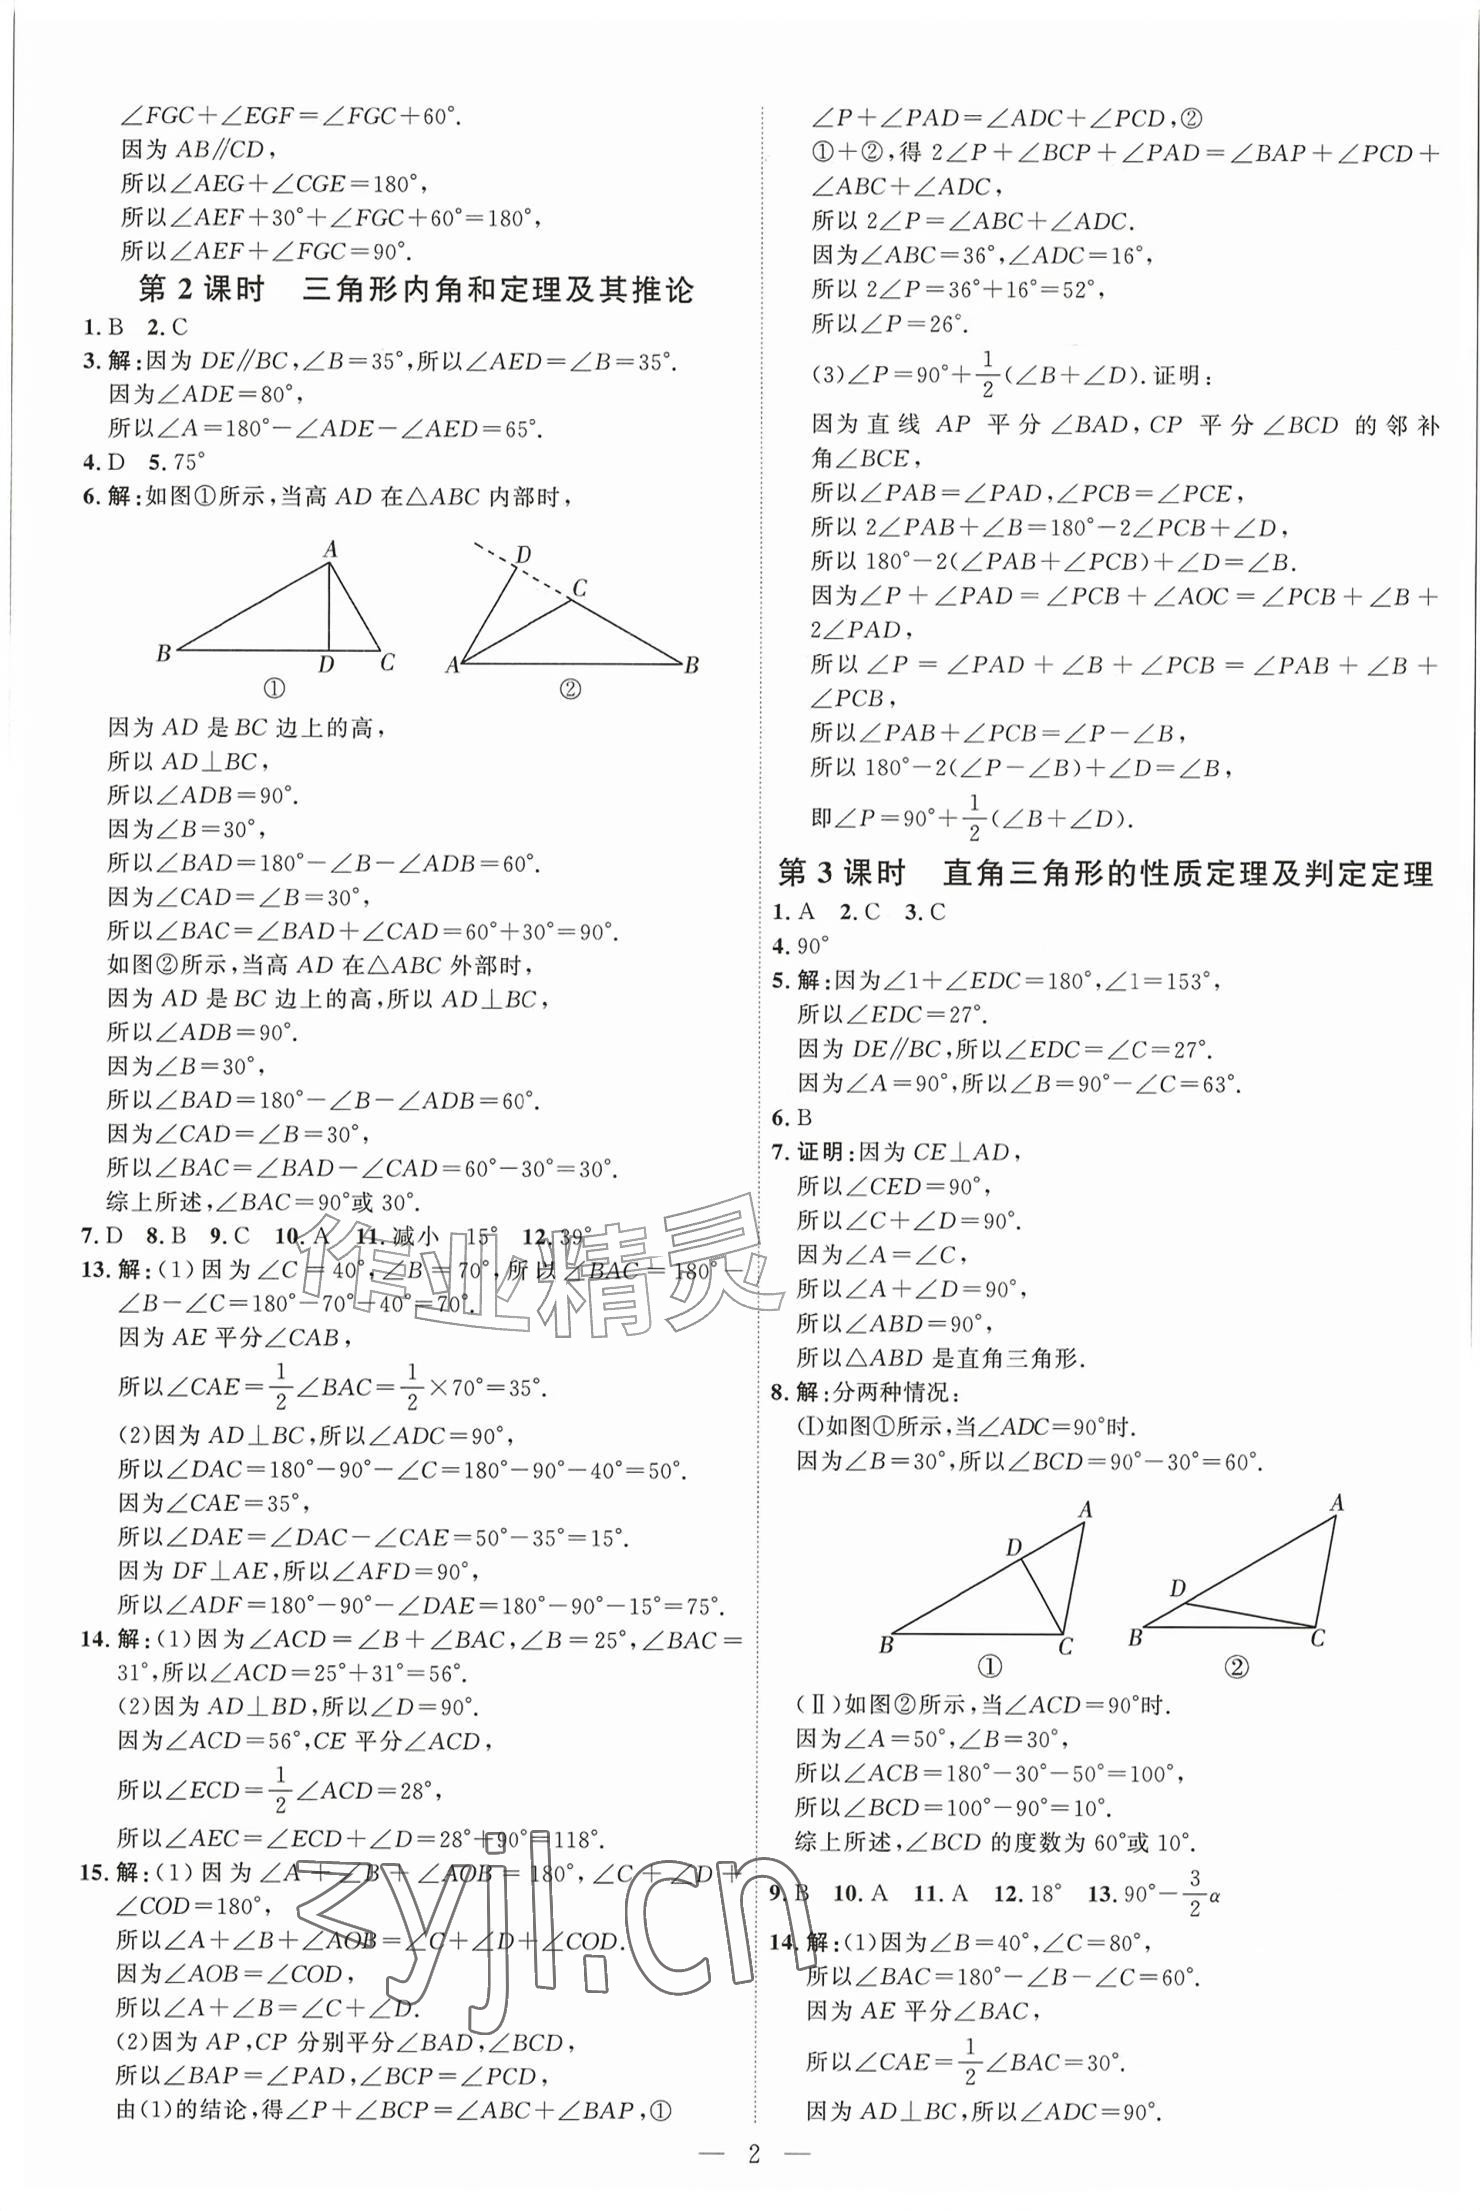 ∠FGC+∠EGF=∠FGC+60°.
因为 AB∥CD,
所以∠AEG+∠CGE=180°,
所以∠AEF+30°+∠FGC+60°=180°,
所以∠AEF+∠FGC=90°.
第 2 课时 三角形内角和定理及其推论
1. B 2. C
3. 解:因为 DE∥BC,∠B=35°,所以∠AED=∠B=35°.
因为∠ADE=80°,
所以∠A=180°-∠ADE-∠AED=65°.
4. D 5. 75°
6. 解:如图①所示,当高 AD 在△ABC 内部时,
A
B
D
C
①
D
C
A
B
②
因为 AD 是 BC 边上的高,
所以 AD⊥BC,
所以∠ADB=90°.
因为∠B=30°,
所以∠BAD=180°-∠B-∠ADB=60°.
因为∠CAD=∠B=30°,
所以∠BAC=∠BAD+∠CAD=60°+30°=90°.
如图②所示,当高 AD 在△ABC 外部时,
因为 AD 是 BC 边上的高,所以 AD⊥BC,
所以∠ADB=90°.
因为∠B=30°,
所以∠BAD=180°-∠B-∠ADB=60°.
因为∠CAD=∠B=30°,
所以∠BAC=∠BAD-∠CAD=60°-30°=30°.
综上所述,∠BAC=90°或 30°.
7. D 8. B 9. C 10. A 11. 减小 15° 12. 39°
13. 解:(1)因为∠C=40°,∠B=70°,所以∠BAC=180°-
∠B-∠C=180°-70°-40°=70°.
因为 AE 平分∠CAB,
所以∠CAE=1/2∠BAC=1/2×70°=35°.
(2)因为 AD⊥BC,所以∠ADC=90°,
所以∠DAC=180°-90°-∠C=180°-90°-40°=50°.
因为∠CAE=35°,
所以∠DAE=∠DAC-∠CAE=50°-35°=15°.
因为 DF⊥AE,所以∠AFD=90°,
所以∠ADF=180°-90°-∠DAE=180°-90°-15°=75°.
14. 解:(1)因为∠ACD=∠B+∠BAC,∠B=25°,∠BAC=
31°,所以∠ACD=25°+31°=56°.
(2)因为 AD⊥BD,所以∠D=90°.
因为∠ACD=56°,CE 平分∠ACD,
所以∠ECD=1/2∠ACD=28°,
所以∠AEC=∠ECD+∠D=28°+90°=118°.
15. 解:(1)因为∠A+∠B+∠AOB=180°,∠C+∠D+
∠COD=180°,
所以∠A+∠B+∠AOB=∠C+∠D+∠COD.
因为∠AOB=∠COD,
所以∠A+∠B=∠C+∠D.
(2)因为 AP,CP 分别平分∠BAD,∠BCD,
所以∠BAP=∠PAD,∠BCP=∠PCD,
由(1)的结论,得∠P+∠BCP=∠ABC+∠BAP,①
∠P+∠PAD=∠ADC+∠PCD,②
①+②,得 2∠P+∠BCP+∠PAD=∠BAP+∠PCD+
∠ABC+∠ADC,
所以 2∠P=∠ABC+∠ADC.
因为∠ABC=36°,∠ADC=16°,
所以 2∠P=36°+16°=52°,
所以∠P=26°.
(3)∠P=90°+1/2(∠B+∠D).证明:
因为直线 AP 平分∠BAD,CP 平分∠BCD 的邻补
角∠BCE,
所以∠PAB=∠PAD,∠PCB=∠PCE,
所以 2∠PAB+∠B=180°-2∠PCB+∠D,
所以 180°-2(∠PAB+∠PCB)+∠D=∠B.
因为∠P+∠PAD=∠PCB+∠AOC=∠PCB+∠B+
2∠PAD,
所以∠P=∠PAD+∠B+∠PCB=∠PAB+∠B+
∠PCB,
所以∠PAB+∠PCB=∠P-∠B,
所以 180°-2(∠P-∠B)+∠D=∠B,
即∠P=90°+1/2(∠B+∠D).
第 3 课时 直角三角形的性质定理及判定定理
1. A 2. C 3. C
4. 90°
5. 解:因为∠1+∠EDC=180°,∠1=153°,
所以∠EDC=27°.
因为 DE∥BC,所以∠EDC=∠C=27°.
因为∠A=90°,所以∠B=90°-∠C=63°.
6. B
7. 证明:因为 CE⊥AD,
所以∠CED=90°,
所以∠C+∠D=90°.
因为∠A=∠C,
所以∠A+∠D=90°,
所以∠ABD=90°,
所以△ABD 是直角三角形.
8. 解:分两种情况:
(Ⅰ)如图①所示,当∠ADC=90°时.
因为∠B=30°,所以∠BCD=90°-30°=60°.
A
D
B
C
①
A
D
B
C
②
(Ⅱ)如图②所示,当∠ACD=90°时.
因为∠A=50°,∠B=30°,
所以∠ACB=180°-30°-50°=100°,
所以∠BCD=100°-90°=10°.
综上所述,∠BCD 的度数为 60°或 10°.
9. B 10. A 11. A 12. 18° 13. 90°-3/2α
14. 解:(1)因为∠B=40°,∠C=80°,
所以∠BAC=180°-∠B-∠C=60°.
因为 AE 平分∠BAC,
所以∠CAE=1/2∠BAC=30°.
因为 AD⊥BC,所以∠ADC=90°.
— 2 —
作业精灵
zyjl.cn